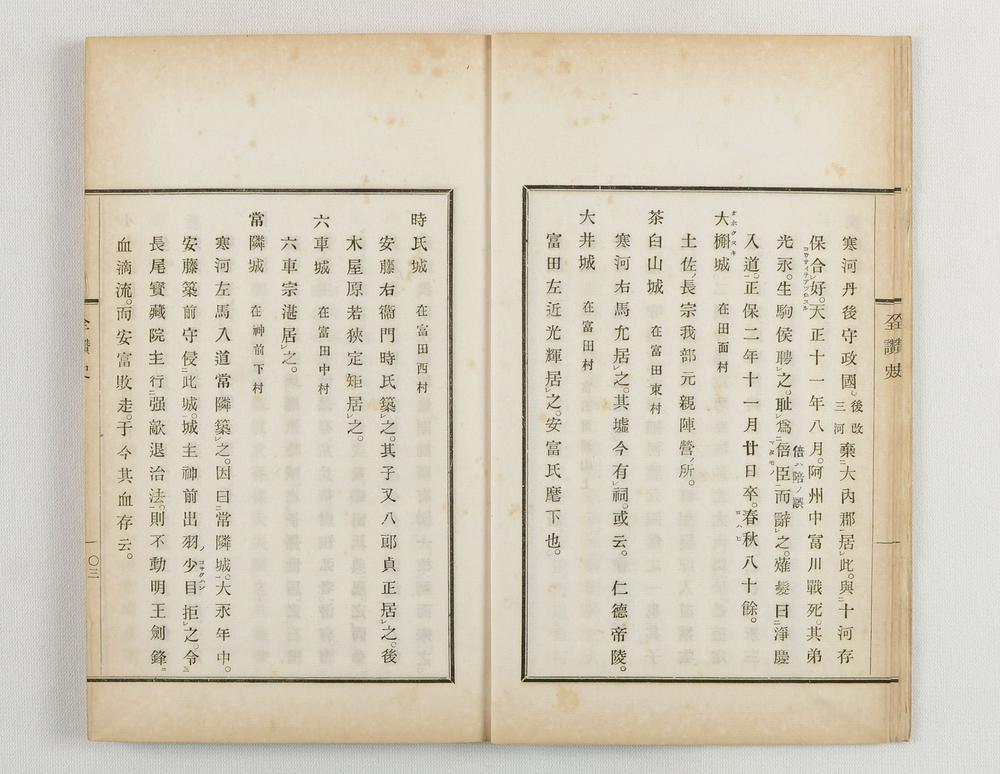 寒河丹後守政國。後改三河棄大內郡居此。與十河存
保合好。天正十一年八月。阿州中富川戰死。其弟
光永。生駒侯聘之。耻爲倍臣而辭之。薙髮曰淨慶
倍ハ陪ノ誤
入道。正保二年十一月廿日卒。春秋八十餘。
大槲城 在田面村
土佐長宗我部元親陣營ノ所。
茶臼山城 在富田東村
寒河右馬允居之。其墟今有祠。或云。仁德帝陵。
大井城 在富田村
富田左近光輝居之。安富氏麾下也。
時氏城 在富田西村
安藤右衞門時氏築之。其子又八郎貞正居之。後
木屋原若狹定矩居之。
六車城 在富田中村
六車宗湛居之。
常隣城 在神前下村
寒河左馬入道常隣築之。因曰常隣城。大永年中。
安藤築前守侵此城。城主神前出羽ノ少目拒之。令
長尾寳藏院主行强敵退治法。則不動明王劍鋒。
血滴流。而安富敗走。于今其血存云。
全讚史
全讚史
〇三